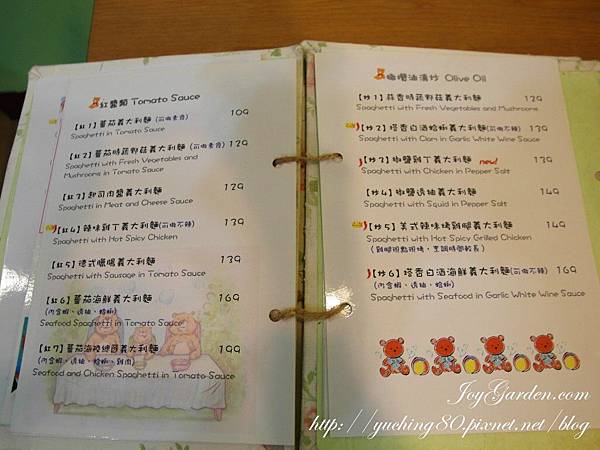 紅醬類 Tomato Sauce
【紅1】蕃茄義大利麵(可做素食) 109
Spaghetti in Tomato Sauce
【紅2】蕃茄時蔬野菇義大利麵(可做素食) 129
Spaghetti with Fresh Vegetables and
Mushrooms in Tomato Sauce
【紅3】起司肉醬義大利麵 129
Spaghetti in Meat and Cheese Sauce
【紅4】辣味雞丁義大利麵(可做不辣) 139
Spaghetti with Hot Spicy Chicken
【紅5】德式臘腸義大利麵 139
Spaghetti with Sausage in Tomato Sauce
【紅6】蕃茄海鮮義大利麵 169
(內含蝦、透抽、蛤蜊)
Seafood Spaghetti in Tomato Sauce
【紅7】蕃茄海陸總匯義大利麵 199
(內含蝦、透抽、蛤蜊、雞肉)
Seafood and Chicken Spaghetti in Tomato Sauce
橄欖油清炒 Olive Oil
【炒1】蒜香時蔬野菇義大利麵 129
Spaghetti with Fresh Vegetables and Mushrooms
【炒2】塔香白酒蛤蜊義大利麵(可做不辣) 139
Spaghetti with Clam in Garlic White Wine Sauce
【炒3】椒鹽雞丁義大利麵 new! 139
Spaghetti with Chicken in Pepper Salt
【炒4】椒鹽透抽義大利麵 149
Spaghetti with Squid in Pepper Salt
【炒5】美式辣味烤雞腿義大利麵 149
Spaghetti with Hot Spicy Grilled Chicken
(雞腿現點現烤，烹調時間較長)
【炒6】塔香白酒海鮮義大利麵(可做不辣) 169
(內含蝦、透抽、蛤蜊)
Spaghetti with Seafood in Garlic White Wine Sauce
JoyGarden.com
http://yuching80.pixnet.net/blog